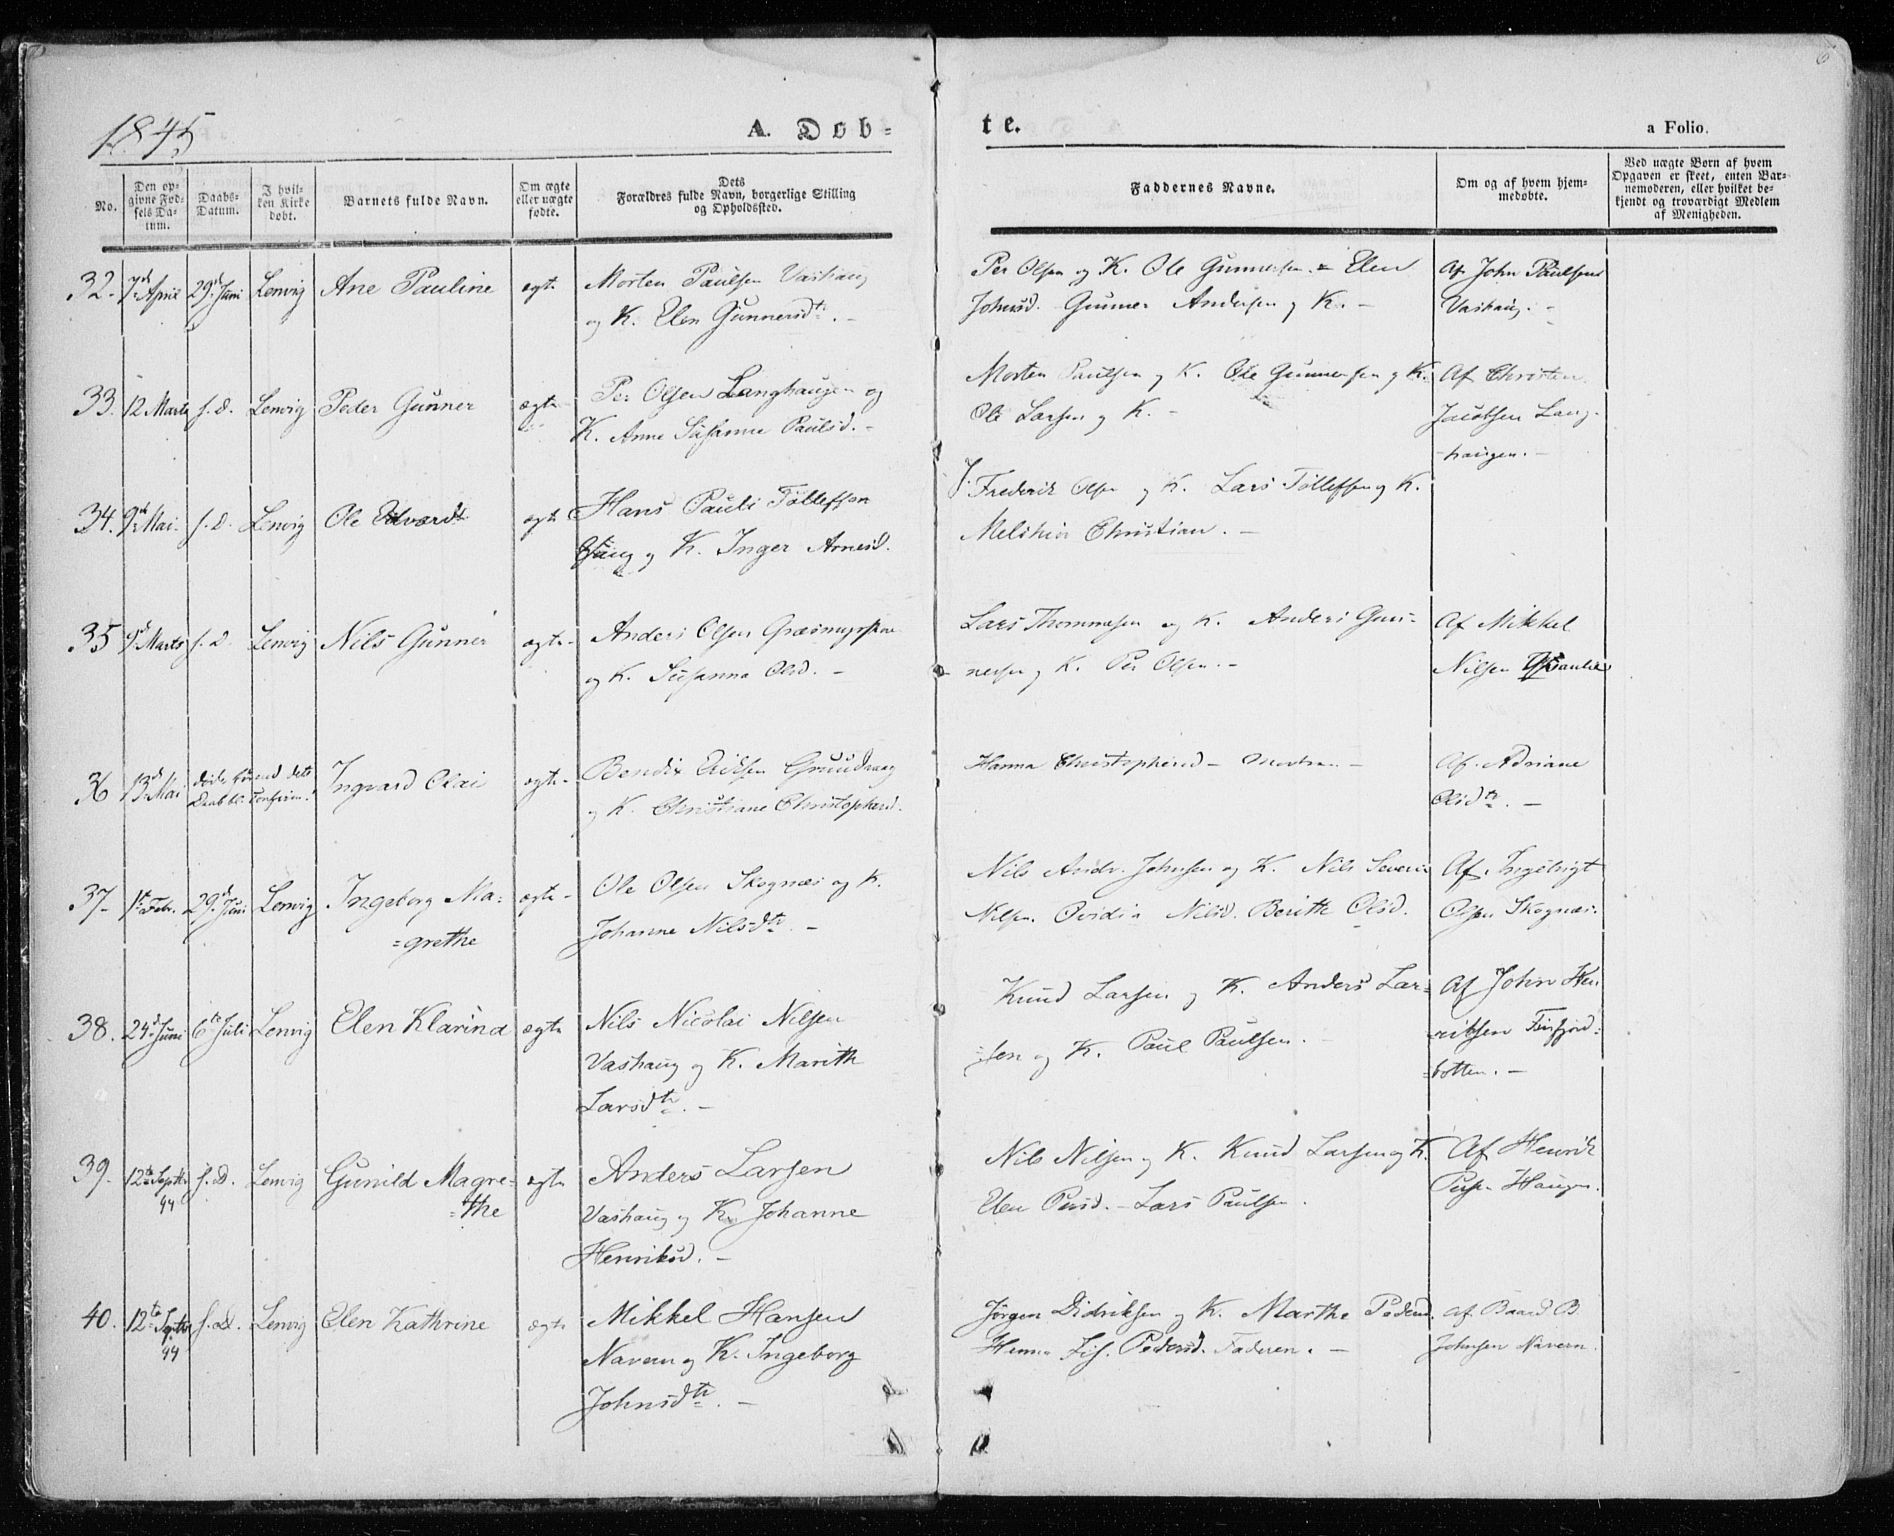 1845
A. Döb-
te.
a Folio.
6
No.
Den op-
givne Föd-
sels Da-
tum.
Daabs-
Datum.
I hvil-
ken Kirke
döbt.
Barnets fulde Navn.
Om ægte
eller uægte
födte.
Dets
Forældres fulde Navn, borgerlige Stilling
og Opholdssted.
Faddernes Navne.
Om og af hvem hjem-
medöbte.
Ved uægte Börn af hvem
Opgaven er skeet, enten Bar-
nemoderen, eller hvilket be-
kjendt og troværdigt Medlem
af Menigheden.
32. 7d April 29d Juni Lenvig Ane Pauline ægte
Morten Paulsen Vashaug
og K. Elen Gunnersdtr. -
Per Olsen og K. Ole Gunnersen - Elen
Johnsd. Gunner Andersen og K. -
Af John Paulsen
Vashaug. -
33. 12 Marts s. D. Lenvig Peder Gunner ægte
Per Olsen Langhaugen og
K. Anne Susanne Paulsd. -
Morten Paulsen og K. Ole Gunnersen og K.
Ole Larsen og K. -
Af Christen
Jacobsen Lang-
-haugen. -
34. 9d Mai. s. D. Lenvig Ole Edvardt ægte
Hans Pauli Tollefsen
og K. Inger Arnesd.
Frederik Olsen og K. Lars Tollefsen og K.
Melchior Christian. -
35 9d Marts s. D. Lenvig Nils Gunner ægte
Anders Olsen
og K. Susanna Olsd. -
Lars Thommesen og K. Anders Gun-
nersen og K. Per Olsen. -
Af Mikkel
Nilsen
36 13d Mai döde förend dets
Daab bl. Confirm. Ingvard Olai ægte
Bendix Grundvaag
og K. Christiane Christophersd.
Hanna Christophersd - -
Af Adriane
Olsdtr. -
37. 1te Febr. 29d Juni Lenvig Ingeborg Ma-
=grethe ægte
Ole Olsen Skognæs og K.
Johanne Nilsdtr. -
Nils Andr. Johnsen og K. Nils Severin
Nilsen. Ovidia Nilsd. Berith Olsd.
Af Ingebrigt
Olsen Skognæs.
38. 24d Juni 6te Juli Lenvig Elen Klarina ægte
Nils Nicolai Nilsen
Vashaug og K. Marith
Larsdtr. -
Knud Larsen og K. Anders Lar-
sen og K. Paul Paulsen. -
Af John Hen
riksen Finfjord-
=botten. -
39. 12te Septbr 44 s. D. Lenvig Gunild Magre-
=the ægte
Anders Larsen
Vashaug og K. Johanne
Henriksd. -
Nils Nilsen og K. Knud Larsen og K.
Elen Persd. - Lars Paulsen.
Af Henrik
Persen Haugen.
40. 12te Septbr 44 s. D. Lenvig Elen Kathrine ægte
Mikkel Hansen
Navern og K. Ingeborg
Johnsdtr. -
Jörgen Didriksen og K. Marthe Pedersd.
Lis. Pedersd. Faderen. -
Af Baard B.
Johnsen Navern.